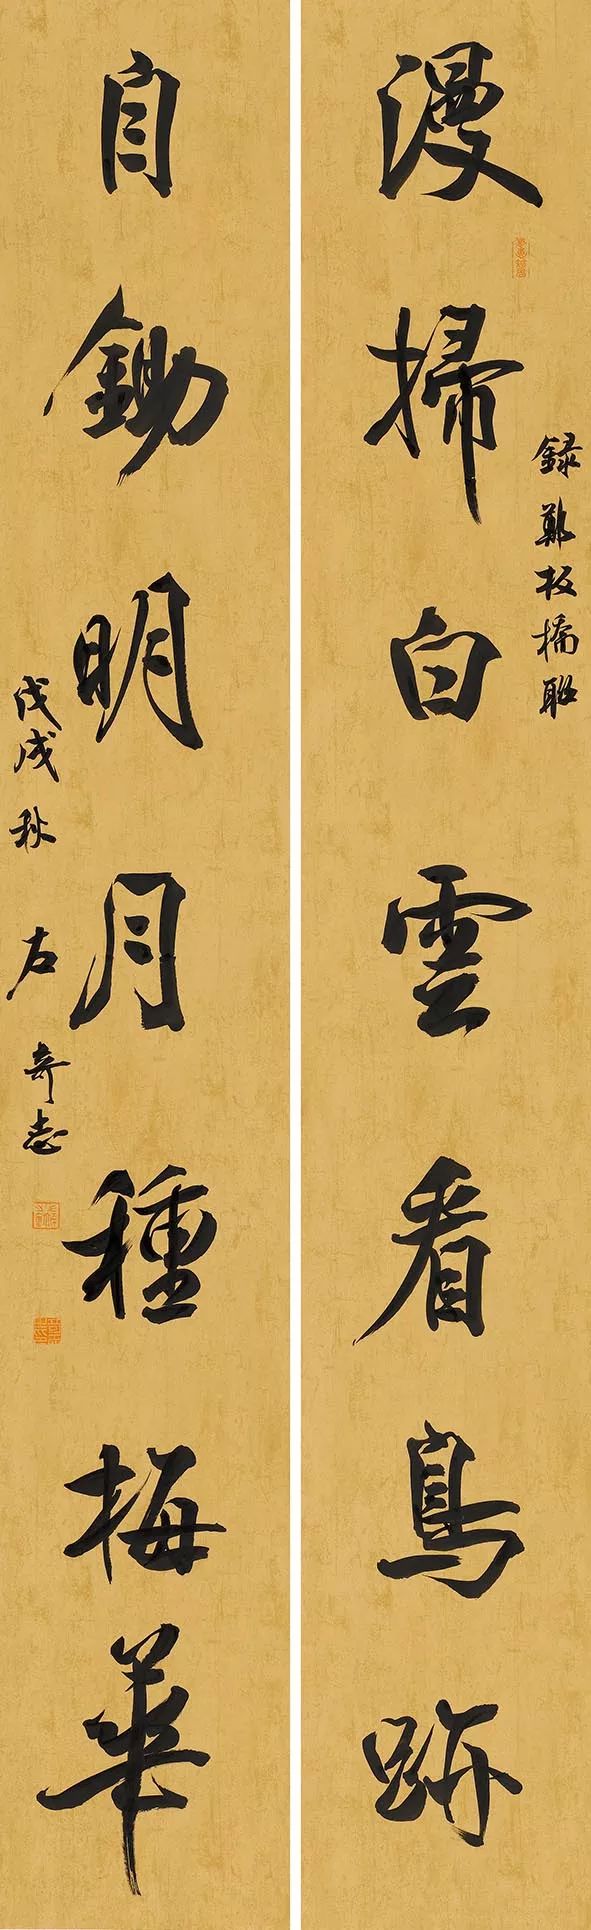 漫掃白雲看鳥跡
録鄭板橋聯
自鋤明月種梅華
戊戌秋
左奇志